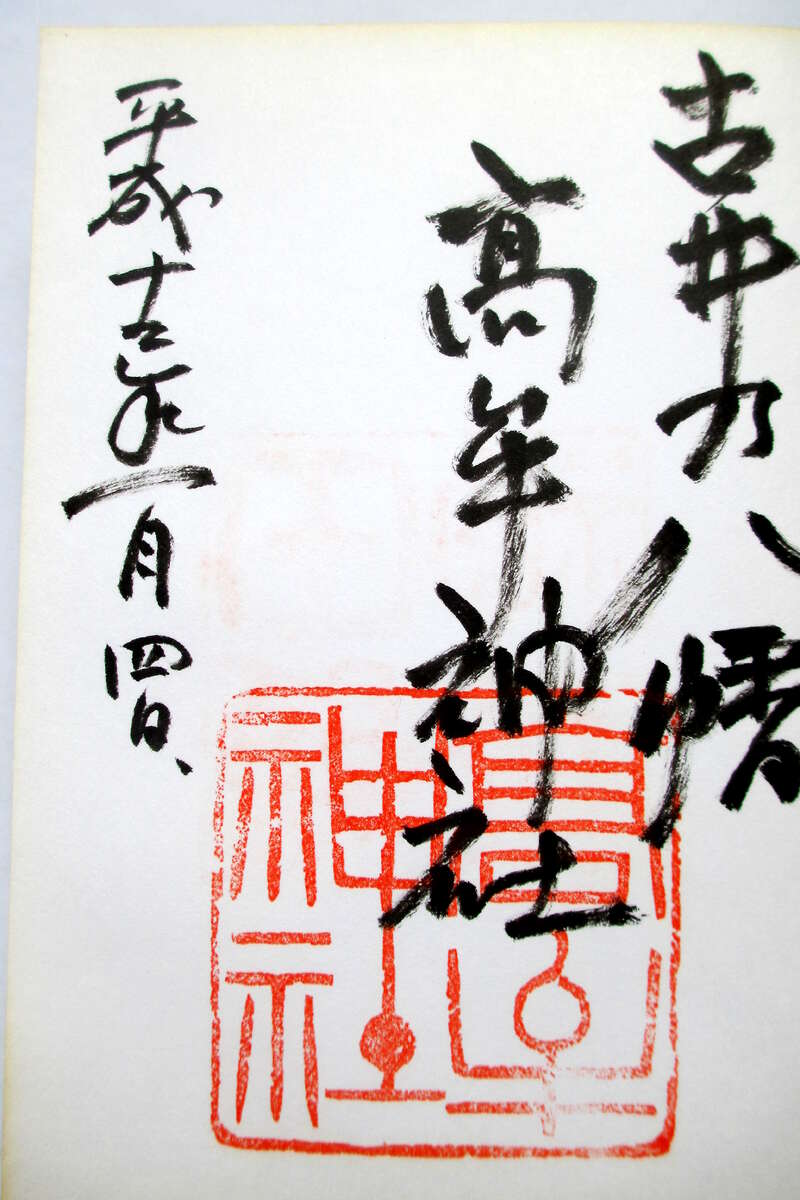 古井乃八幡
高牟神社
平成十年一月四日
高牟
神社